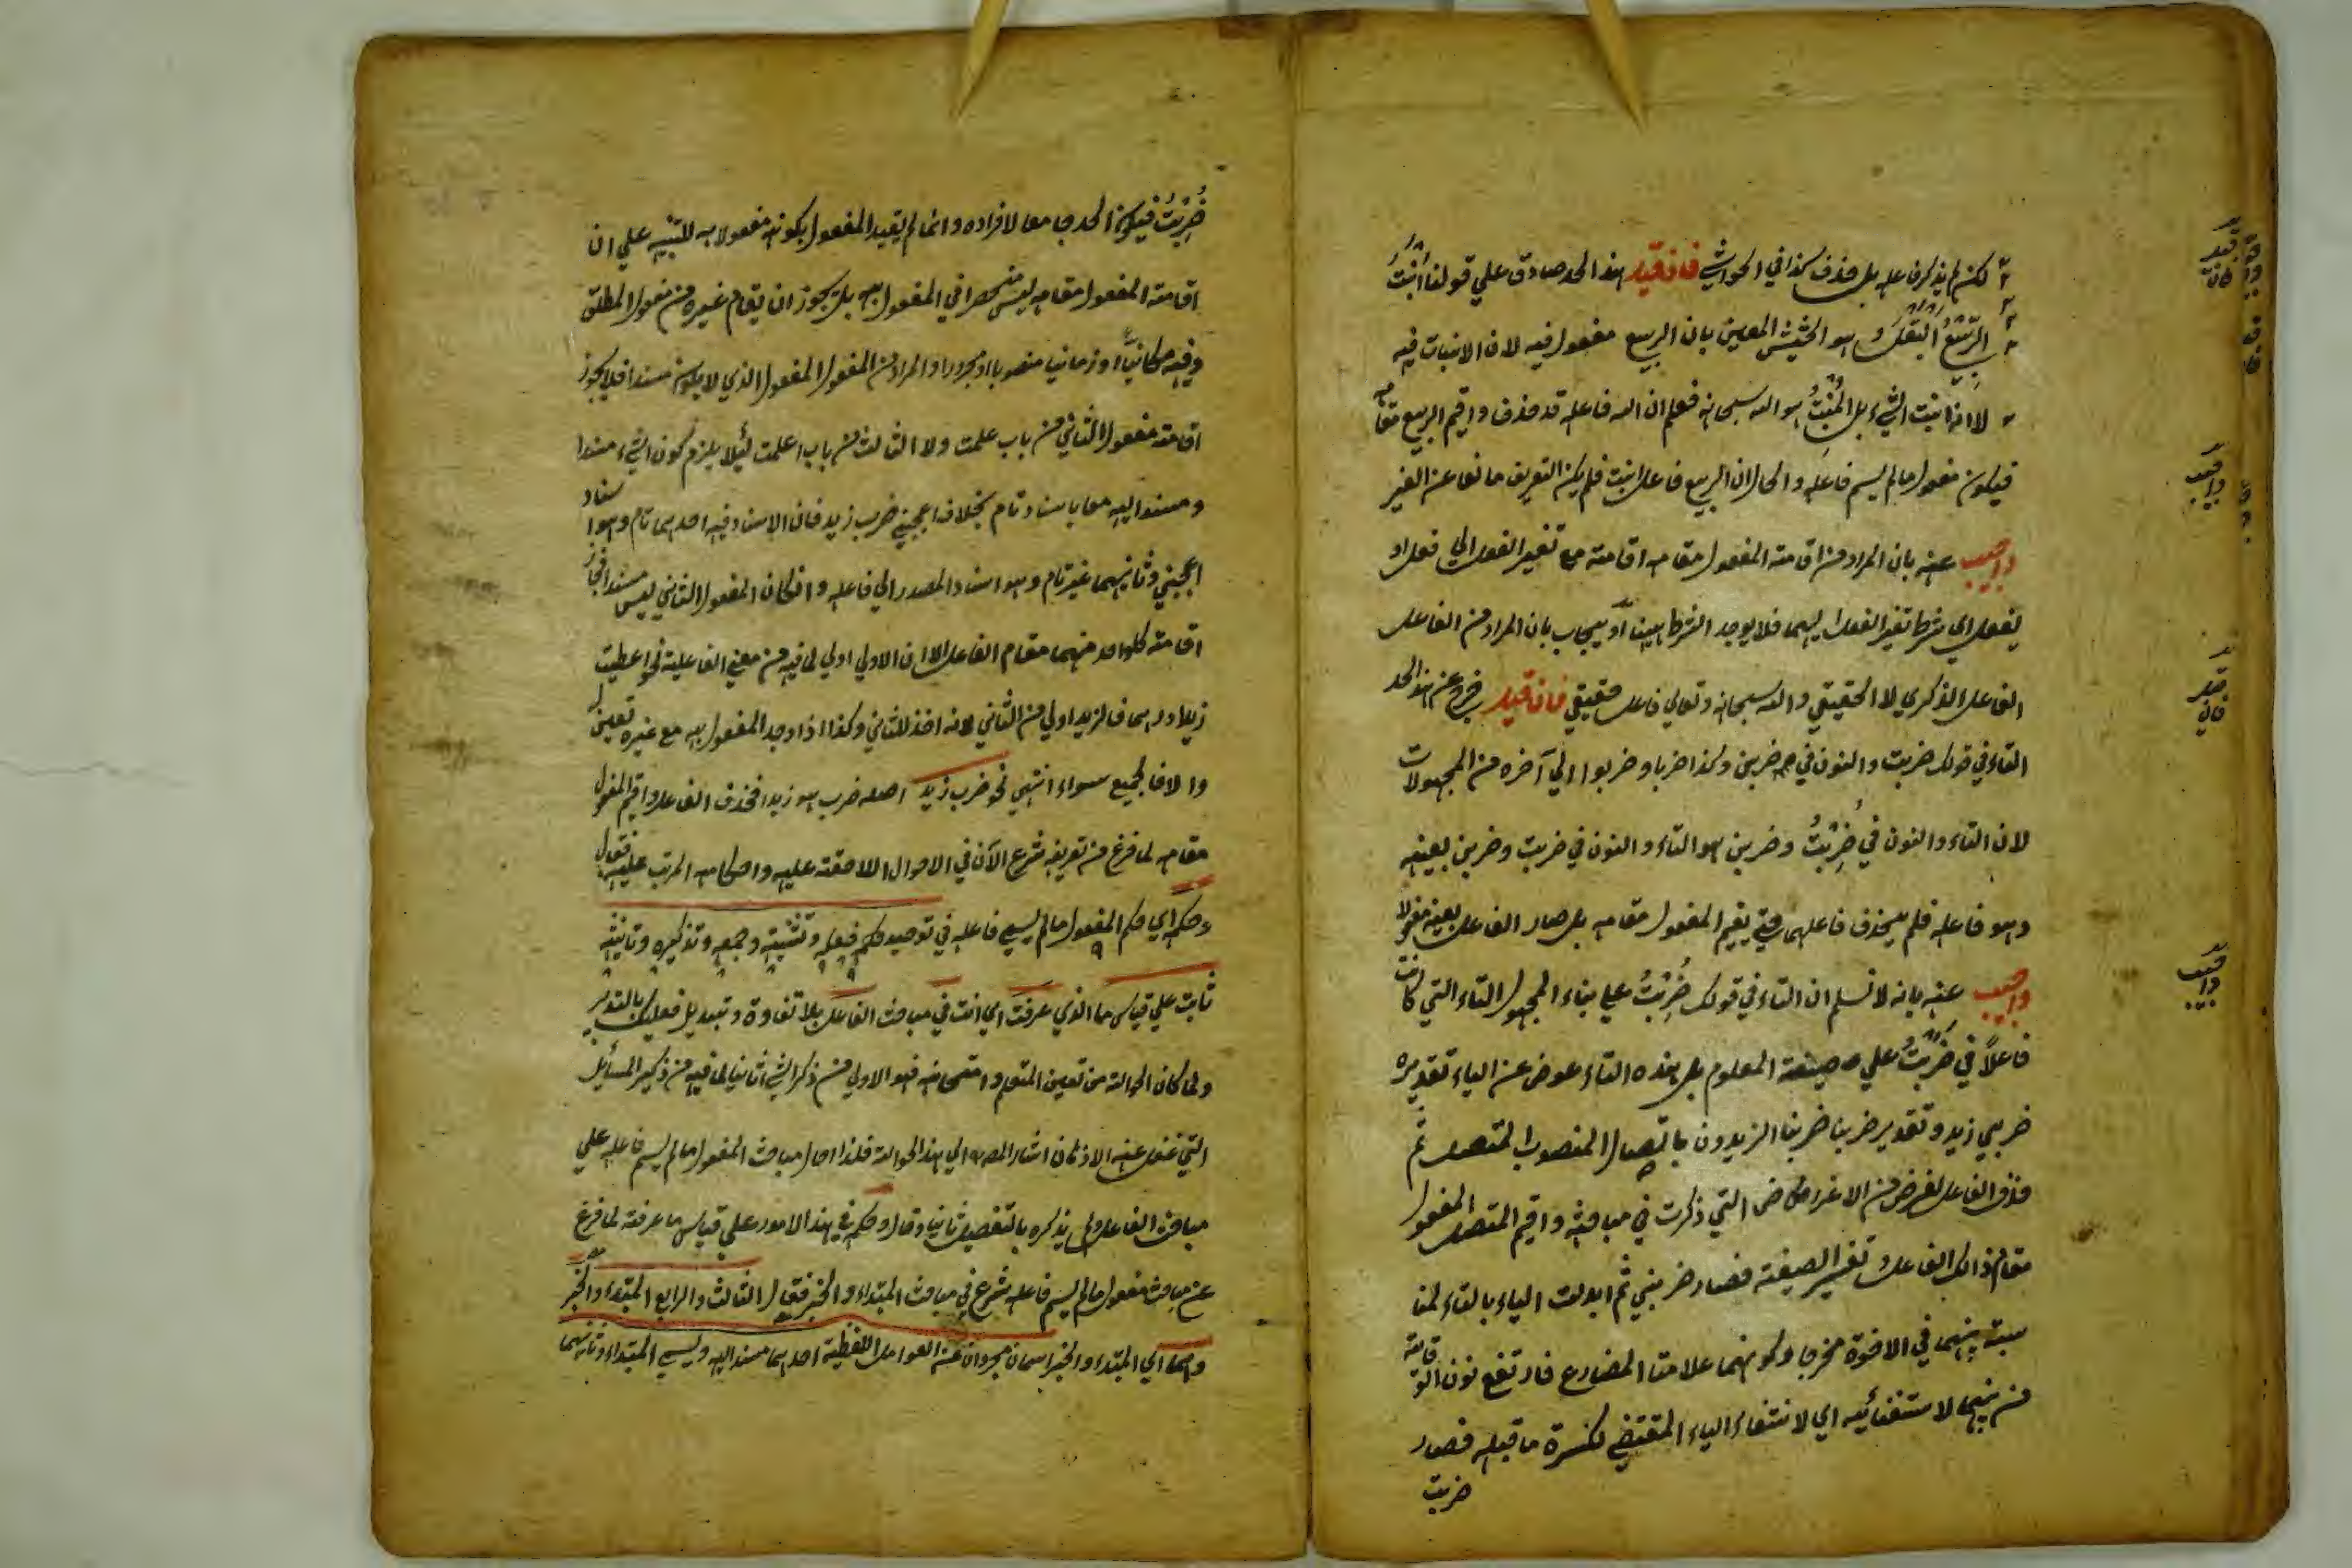 لكن لم يذكر فاعله بل حذف كذا في الحواشي فان قيل هذا الحد صادق علي قولنا اَنْبَتَ
الرَّبِيْعُ الْبَقْلَ و هو الحشيش المعين بان الربيع مفعول فيه لان الانبات فيه
لا انه انبت الشيء بل الْمُنْبِتُ هو الله سبحانه فعلم ان الله فاعله قد حذف و اقيم الربيع مقامه
فيكون مفعول ما لم يسم فاعله و الحال ان الربيع فاعل انبت فلم يكن التعريف مانعا عن الغير
واجيب عنه بان المراد من اقامة المفعول مقامه اقامته مع تغير الفعل الي فعل او
يفعل اي بشرط تغير الفعل اليهما فلا يوجد الشرط هيهنا او يجاب بان المراد من الفاعل
الفاعل الذكري لا الحقيقي و الله سبحانه و تعالي فاعل حقيقي فان قيل خرج عن هذا الحد
التاء في قولك ضربت و النون في ضربن و كذا ضربا و ضربوا الي آخره من المجهولات
لان التاء و النون في ضُرِبْتُ و ضربن هو التاء و النون في ضربت و ضربن بعينه
و هو فاعله فلم يحذف فاعلهما حتي يقيم المفعول مقامه بل صار الفاعل بعينه مفعولا
واجيب عنه بانه لا نسلم ان التاء في قولك ضُرِبْتُ علي بناء المجهول التاء التي كانت
فاعلاً في ضَرَبْتُ علي صيغة المعلوم بل هذه التاء عوض عن الياء تقديره
ضربني زيد و تقدير ضربنا ضربنا الزيدون باتصال المنصوب المتصل ثم
حذف الفاعل لغرض من الاغراض التي ذكرت في مباحثه و اقيم المتصل المفعول
مقام ذالك الفاعل و تغير الصيغة فصار ضربني ثم ابدلت الياء بالتاء لمنا
سبة بينهما في الاخوة مخرجا و كونهما علامتا المضارع فارتفع نون الوقاية
من بينهما لاستغنائيه اي لانتفاء الياء المقتضي لكسرة ما قبله فصار
ضربت
فان قيل
واجيب
فان قيل
واجيب
ضُرِبْتُ فيكون الحد جامعا لافراده و انما لم يقيد المفعول بكونه مفعولا به للتنبيه علي ان
اقامة المفعول مقامه ليس منحصرا في المفعول به بل يجوز ان يقام غيره من مفعول المطلق
و فيه مكانيا او زمانيا منصوبا او مجرورا و المراد من المفعول المفعول الذي لا يكون مسندا فلا يجوز
اقامة مفعول الثاني من باب علمت و لا الثالث من باب اعلمت ليلا يلزم كون الشيء مسندا
و مسندا اليه معا باسناد تام بخلاف اعجبني ضرب زيد فان الاسناد فيه احدهما تام و هو اسناد
اعجبني و ثانيهما غير تام و هو اسناد المصدر الي فاعله و ان كان المفعول الثاني ليس مسندا فجاز
اقامة كل واحد منهما مقام الفاعل الا ان الاولي اولي لما فيه من معني الفاعلية نحو اعطيت
زيدا درهما فالزيد اولي من الثاني لانه اخذ للثاني و كذا اذا وجد المفعول به مع غيره تعين له
و الا فالجميع سواء انتهي نحو ضرب زيد اصله ضرب هو زيدا فحذف الفاعل و اقيم المفعول
مقامه لما فرغ من تعريفه شرع الآن في الاحوال اللاحقة عليه و احكامه المرتب عليه فقال
و حكمه اي حكم المفعول ما لم يسم فاعله في توحيد حكم فعله و تثنيته و جمعه و تذكيره و تانيثه
ثابت علي قياس ما الذي عرفت اي انت في مباحث الفاعل بلا تفاوة و تبديل فعليك بالتدبر
و لما كان الحوالة من تعيين المتعلم و امتحانه فهو الاولي من ذكر الشيء ثانيا لما فيه من ذكير المسائل
التي غفل عنه الاذهان اشار المصـ الي هذا الحوالة فلذا احال مباحث المفعول ما لم يسم فاعله علي
مباحث الفاعل و لم يذكره بالتفصيل ثانيا و قال و حكمه في هذا الامور علي قياس ما عرفته لما فرغ
عن مباحث مفعول ما لم يسم فاعله شرع في مباحث المبتداء و الخبر فقال الثالث و الرابع المبتداء و الخبر
و هما اي المبتداء و الخبر اسمان مجردان عن العوامل اللفظية احدهما مسند اليه و يسمي المبتداء و ثانيهما